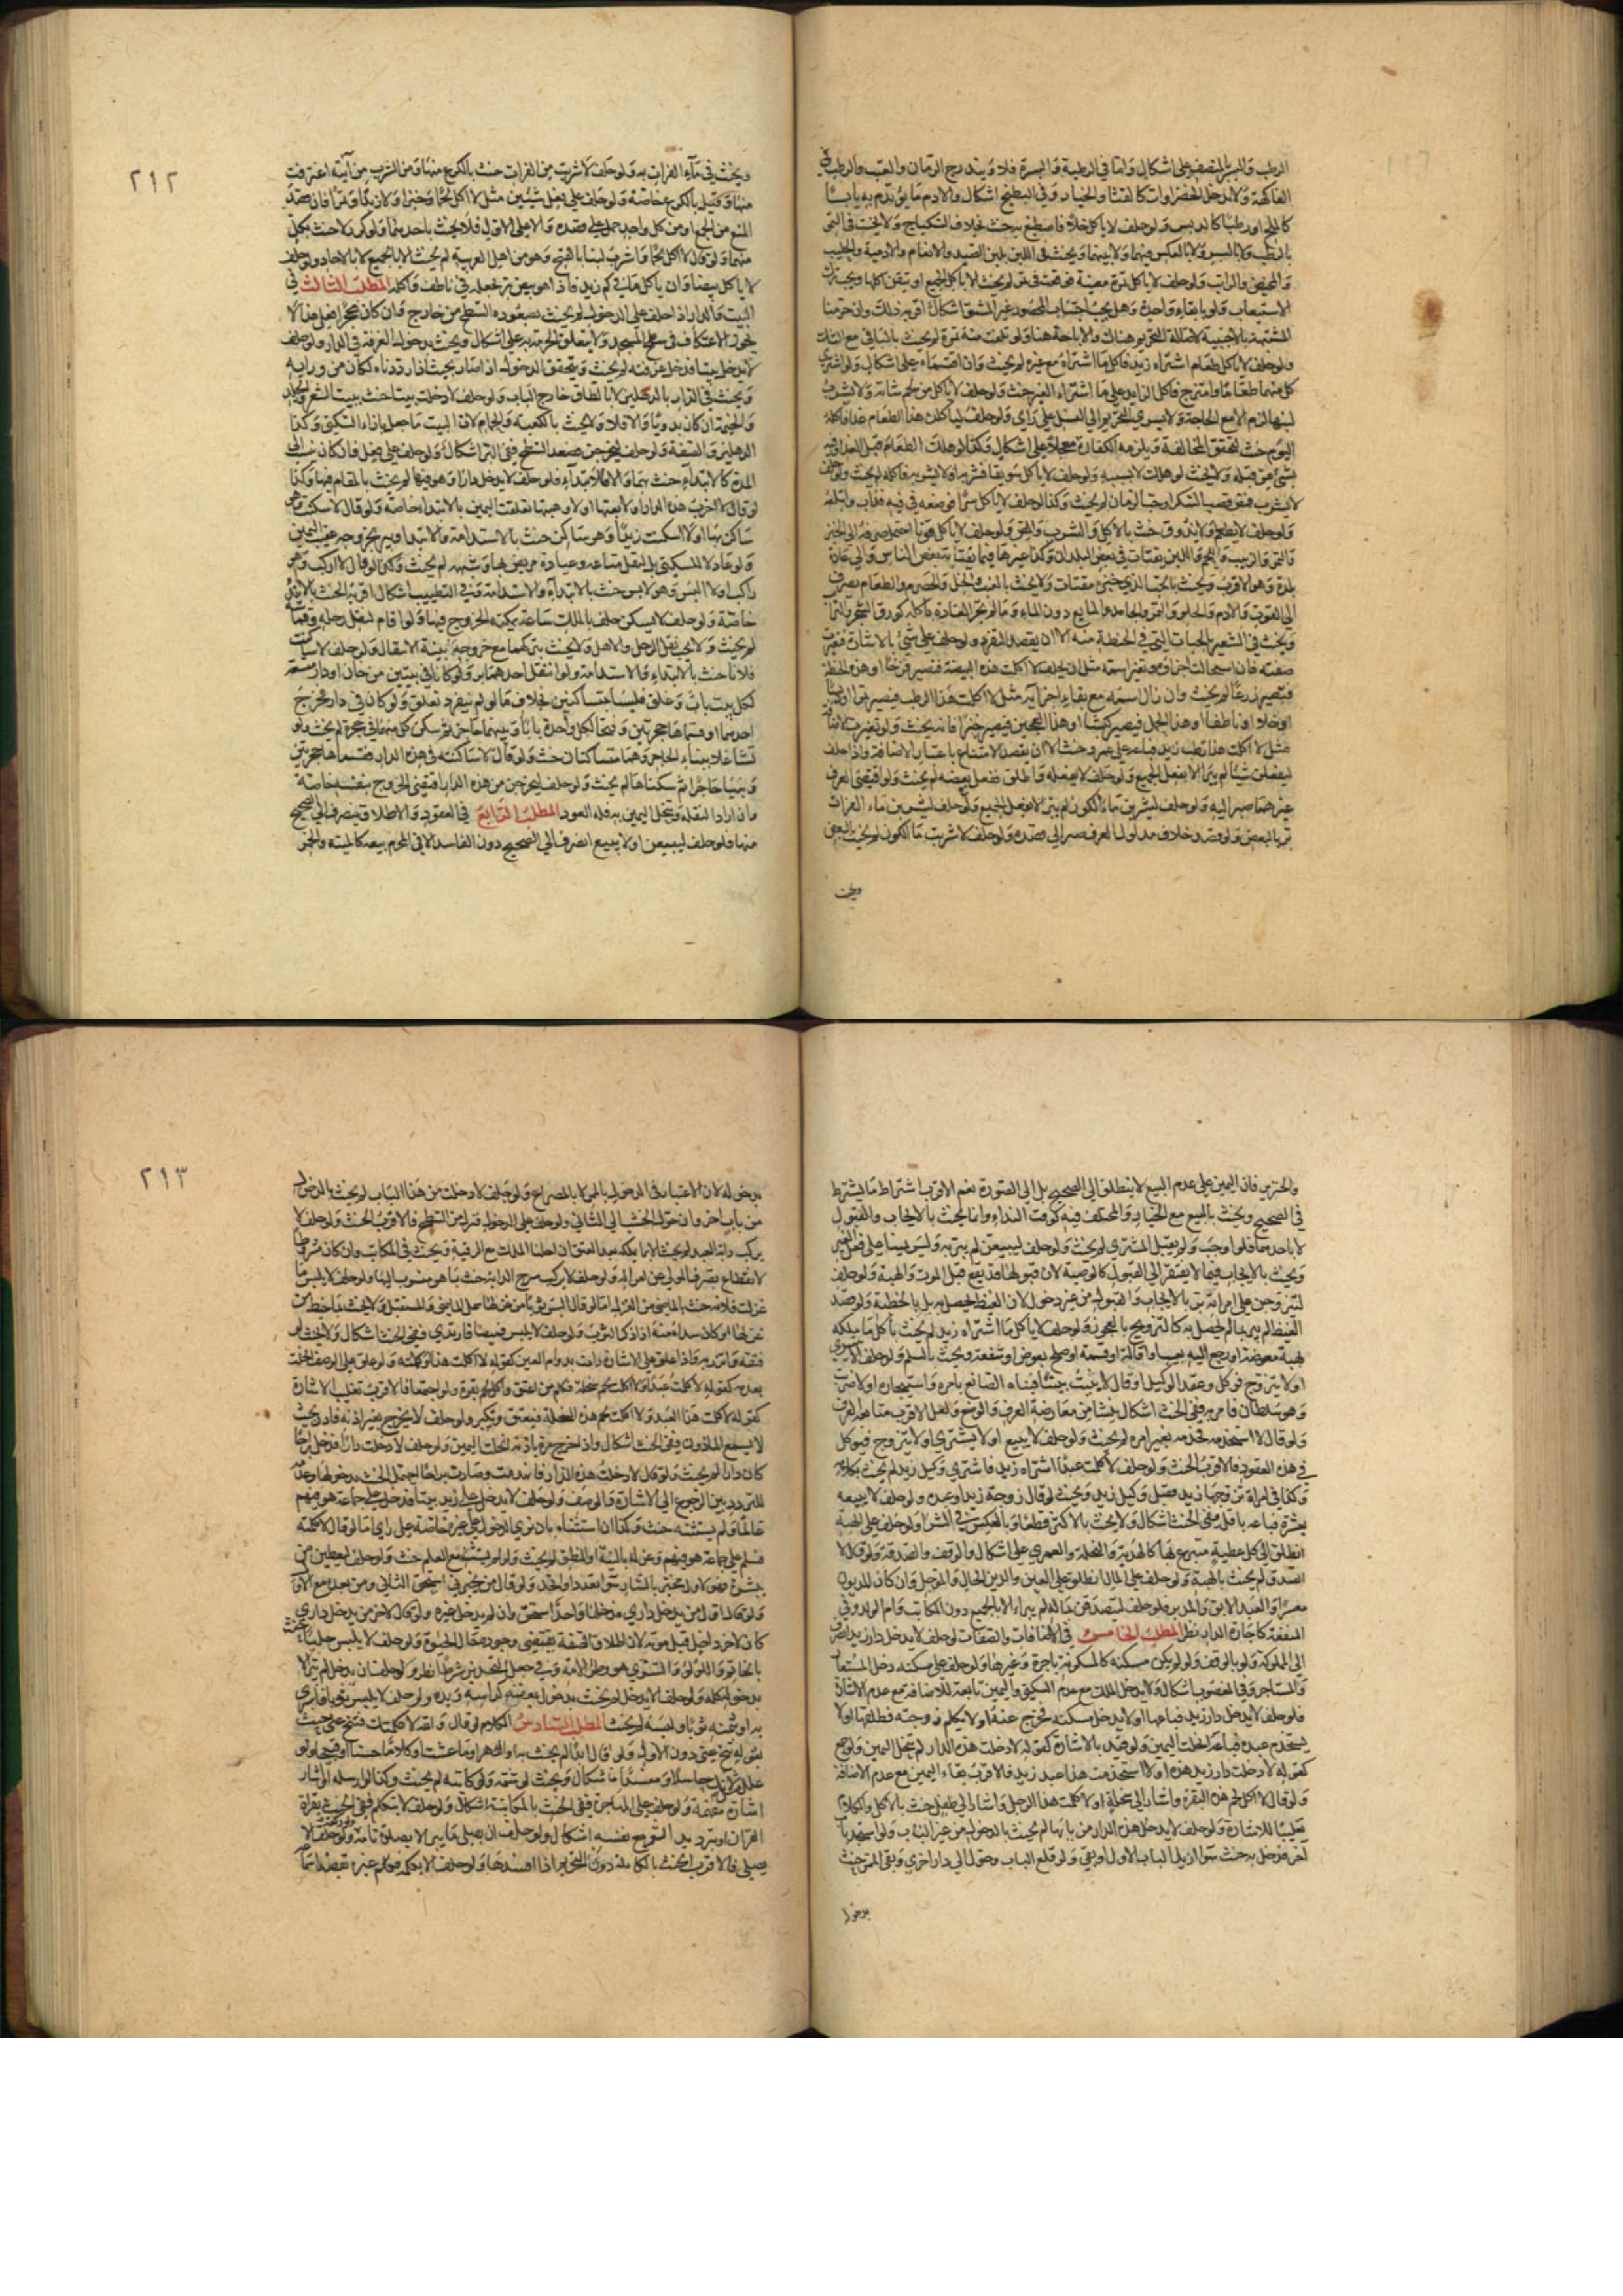 الرطب والبسر المنصف على اشكال واما في الرطبة والبسرة فلا ويندرج الرمان والعنب والرطب في
الفاكهة ولا يدخل الخضراوات كالقثاء والخيار وفي البطيخ اشكال والادم ما يؤتدم به يابسا
كالملح او رطبا كالدبس ولو حلف لا ياكل خلا فاصطبغ به حنث بخلاف السكباج ولا يحنث في التمر
بالرطب ولا بالبسر ولا بالعكس فيهما ولا بينهما ويحنث في اللبن بلبن الصيد والانعام والادمية والحليب
والمخيض والرائب ولو حلف لا ياكل تمرة معينة فوقعت في تمر لم يحنث الا باكل الجميع او تيقن اكلها ويجب ترك
الاستيعاب ولو بابقاء واحدة وهل يجب اجتناب المحصور غير المشق اشكال اقربه ذلك وان حرمنا
المشتبه بالاجنبية لاصالة التحريم هناك والاباحة هنا ولو تلفت منه تمرة لم يحنث بالباقي مع الشك
ولو حلف لا ياكل طعاما اشتراه زيد فاكل ما اشتراه مع غيره لم يحنث وان اقتسماه على اشكال ولو اشترى
كل منهما طعاما وامتزج فاكل الزايد على ما اشتراه الغير حنث ولو حلف لا ياكل من لحم شاة ولا يشرب
لبنها لزم الا مع الحاجة ولا يسري التحريم الى النسل على راي ولو حلف لياكلن هذا الطعام غدا فاكله
اليوم حنث لتحقق المخالفة ويلزمه الكفارة معجلا على اشكال وكذا لو هلك الطعام قبل الغد او فيه
بشئ من قبله ولا يحنث لو هلك لا بسببه ولو حلف لا ياكل سويقا فشربه او لا يشربه فاكله لم يحنث ولو حلف
لا يشرب فمص قصب السكر او حب الرمان لم يحنث وكذا لو حلف لا ياكل سكرا فوضعه في فيه فذاب وابتلعه
ولو حلف لا يطعم ولا يذوق حنث بالاكل والشرب والمص ولو حلف لا ياكل قوتا احتمل صرفه الى الخبز
والتمر والزبيب واللحم واللبن يقتات في بعض البلدان وكذا غيرها فيما يقتاته بعض الناس والى عادة
بلده وهو الاقرب ويحنث بالحب الذي خبزه مقتات ولا يحنث بالعنب والخل والحصرم والطعام يصرف
الى القوت والادم والحلو والتمر والجامد والمايع دون الماء وما لم تجر العادة باكله كورق الشجر والتراب
ويحنث في الشعير بالحبات التي في الحنطة منه الا ان يقصد المنفرد ولو حلف على شئ بالاشارة فتغيرت
صفته فان استحالت اجزاؤه وتغير اسمه مثل ان يحلف لا اكلت هذه البيضة فتصير فرخا او هذه الحنطة
فتصير زرعا لم يحنث وان زال اسمه مع بقاء اجزائه مثل لا اكلت هذا الرطب فيصير تمرا او دبسا
او خلا او ناطفا او هذا الحمل فيصير كبشا او هذا العجين فيصير خبزا فانه يحنث ولو تغيرت الاضافة
مثل لا اكلت هذا رطب زيد فباعه على عمرو حنث الا ان يقصد الامتناع باعتبار الاضافة واذا حلف
ليفعلن شيئا لم يبر الا بفعل الجميع ولو حلف لا يفعله واطلق ففعل بعضه لم يحنث ولو اقتضى العرف
غيرهما صير اليه ولو حلف ليشربن ماء الكوز لم يبر الا بفعل الجميع ولو حلف ليشربن ماء الفرات
بر بالبعض ولو قصد خلاف مدلول العرف صير الى قصده ولو حلف لا شربت ماء الكوز لم يحنث بالبعض
ويحنث
٢١٢
ويحنث في ماء الفرات به ولو حلف لا شربت من الفرات حنث بالكرع منها ومن الشرب من آنية اغترفت
منها وقيل بالكرع خاصة ولو حلف على فعل شيئين مثل لا اكل لحما وخبزا ولا زبدا وتمرا فان قصد
المنع من الجمع او من كل واحد حمل على قصده والا على الاول فلا يحنث باحدهما ولو كرر لا حنث بكل
منهما ولو قال لا اكل لحما واشرب لبنا بالفتح وهو من اهل العربية لم يحنث الا بالجميع لا بالاحاد ولو حلف
لا ياكل بيضا وان ياكل ما في كم زيد فاذا هو بيض بر بجعله في ناطف واكله المطلب الثالث في
البيت والدار اذا حلف على الدخول لم يحنث بصعوده السطح من خارج وان كان محجرا فعلى هذا لا
يجوز الاعتكاف في سطح المسجد ولا يتعلق الحرمة به على اشكال ويحنث بدخول الغرفة في الدار ولو حلف
لا يدخل بيتا فدخل غرفته لم يحنث ويتحقق الدخول اذا صار بحيث اذا رد بابه كان من ورائه
ويحنث في الدار بالدهليز لا بالطاق خارج الباب ولو حلف لا دخلت بيتا حنث ببيت الشعر والجلد
والخيمة ان كان بدويا والا فلا ولا يحنث بالكعبة والحمام لان البيت ما جعل بازاء السكنى وكذا
الدهليز والصفة ولو حلف ليخرجن فصعد السطح ففي البر اشكال ولو حلف على فعل فان كان نسب الى
المدة كالابتداء حنث بهما والا فالابتداء فلو حلف لا يدخل دارا وهو فيها لم يحنث بالمقام فيها وكذا
لو قال لا اجرت هذه الدار او لا بعتها او لا وهبتها تعلقت اليمين بالابتداء خاصة ولو قال لا سكنت وهو
ساكن بها او لا اسكنت زيدا وهو ساكن حنث بالاستدامة والابتداء ويبر بخروجه عقيب اليمين
ولو عاد لا للسكنى بل لنقل متاعه وعيادة مريض بها وشبهه لم يحنث وكذا لو قال لا اركب وهو
راكب او لا البس وهو لابس حنث بالابتداء والاستدامة وفي التطيب اشكال اقربه الحنث بالابتداء
خاصة ولو حلف لا يسكن حلف بالمكث ساعة يمكنه الخروج فيها ولو اقام لنقل رحله وقماشه
لم يحنث ولا يجب نقل الرحل والاهل ولا يحنث بتركهما مع خروجه بنية الانتقال ولو حلف لا ساكنت
فلانا حنث بالابتداء والاستدامة ولو انتقل احدهما بر ولو كانا في بيتين من خان او دار متسعة
لكل بيت باب وغلق فليسا بمتساكنين بخلاف ما لو لم ينفرد بغلق ولو كان في دار فخرج
احدهما وقسماها حجرتين وفتحا لكل واحدة بابا وبينهما حاجز ثم سكن كل منهما في حجرة لم يحنث ولو
تشاغلا ببناء الحاجز وهما متساكنان حنث ولو قال لا ساكنته في هذه الدار فقسماها حجرتين
وبنيا حاجزا ثم سكناها لم يحنث ولو حلف ليخرجن من هذه الدار اقتضى الخروج بنفسه خاصة
وان اراد النقلة وتنحل اليمين به فله العود المطلب الرابع في العقود والاطلاق ينصرف الى الصحيح
منها فلو حلف ليبيعن او لا يبيع انصرف الى الصحيح دون الفاسد الا في المحرم بيعه كالميتة والخمر
والخنزير فان اليمين على عدم البيع لا ينطلق الى الصحيح بل الى الصورة نعم الاقرب اشتراط ما يشترط
في الصحيح ويحنث بالبيع مع الخيار والمختلف فيه كوقت النداء وانما يحنث بالايجاب والقبول
لا باحدهما فلو اوجب ولم يقبل المشتري لم يحنث ولو حلف ليبيعن لم يبر به وليس يمينا على فعل الغير
ويحنث بالايجاب فيما لا يفتقر الى القبول كالوصية لان قبولها قد يقع قبل الموت والهبة ولو حلف
ليتزوجن على امراته بر بالايجاب والقبول من غير دخول لان الغيظ يحصل به بل بالخطبة ولو قصد
الغيظ لم يبر بما لم يحصل به كالتزويج بالعجوزة ولو حلف لا ياكل ما اشتراه زيد لم يحنث باكل ما يملكه
بهبة معوضة او رجع اليه بعيب او اقالة او قسمة او صلح بعوض او شفعة ويحنث بالسلم ولو حلف لا يشتري
او لا يتزوج فوكل وعقد الوكيل او قال لا بنيت بيتا فبناه الصانع بامره واستيجاره او لا ضربت
وهو سلطان فامر به ففي الحنث اشكال ينشا من معارضة العرف والوضع ولعل الاقرب متابعة العرف
ولو قال لا استخدمه فخدمه بغير امره لم يحنث ولو حلف لا يبيع او لا يشتري او لا يتزوج فتوكل
في هذه العقود فالاقرب الحنث ولو حلف لا كلمت عبدا اشتراه زيد فاشترى وكيل زيد لم يحنث بكلامه
وكذا في امراة تزوجها زيد فقبل وكيل زيد ويحنث لو قال زوجة زيد او عبده ولو حلف لا يبيعه
بعشرة فباعه باقل ففي الحنث اشكال ولا يحنث بالاكثر قطعا وبالعكس في الشراء ولو حلف على الهبة
انطلق الى كل عطية متبرع بها كالهدية والنحلة والعمرى على اشكال والوقف والصدقة ولو قال لا
اتصدق لم يحنث بالهبة ولو حلف على المال انطلق على العين والدين الحال والمؤجل وان كان المديون
معسرا والعبد الابق والمدبر فلو حلف ليتصدقن بماله لم يبر الا بالجميع دون المكاتب وام الولد وفي
المنفعة كاجارة الدار نظر المطلب الخامس في الاضافات والصفات لو حلف لا يدخل دار زيد انصرف
الى المملوكة ولو بالوقف ولو لم يكن مسكنه كالمسكونة باجرة وغيرها ولو حلف على مسكنه دخل المستعار
والمستاجر وفي المغصوب اشكال ولا يدخل الملك مع عدم السكنى واليمين تابعة للاضافة مع عدم الاشارة
فلو حلف لا يدخل دار زيد فباعها او لا يدخل مسكنه فخرج عنه او لا يكلم زوجته فطلقها او لا
يستخدم عبده فباعه انحلت اليمين ولو قيد بالاشارة كقوله لا دخلت هذه الدار لم تنحل اليمين ولو جمع
كقوله لا دخلت دار زيد هذه او لا استخدمت هذا عبد زيد فالاقرب بقاء اليمين مع عدم الاضافة
ولو قال لا اكل لحم هذه البقرة واشار الى سخلة او لا كلمت هذا الرجل واشار الى طفل حنث بالاكل والكلام
تغليبا للاشارة ولو حلف لا يدخل هذه الدار من بابها لم يحنث بالدخول من غير الباب ولو استجد باب
اخر فدخل به حنث سواء ازيل الباب الاول او بقي ولو قلع الباب وحول الى دار اخرى وبقى الممر حنث
بدخوله
٢١٣
بدخوله لان الاعتبار في الدخول بالممر لا بالمصراع ولو حلف لا دخلت من هذا الباب لم يحنث بالدخول
من باب اخر وان حول الخشب الى الثاني ولو حلف على الدخول فنزل من السطح فالاقرب الحنث ولو حلف لا
يركب دابة العبد لم يحنث الا بما يملكه بعد العتق ان احلنا الملك مع الرقية ويحنث في المكاتب وان كان مشروطا
لانقطاع تصرف المولى عن امواله ولو حلف لا يركب سرج الدابة حنث بما هو منسوب اليها ولو حلف لا يلبس ما
غزلت فلانة حنث بالماضي من الغزل اما لو قال البس ثوبا من غزلها شمل الماضي والمستقبل ولا يحنث بما خيط من
غزلها او كان سداه منه اذا ذكر الثوب ولو حلف لا يلبس قميصا فارتدى به ففي الحنث اشكال ولا يحنث لو
فتقه واتزر به واذا علق على الاشارة دامت بدوام العين كقوله لا اكلت هذا او كلمته ولو علق على الوصف انحلت
بعدمه كقوله لا كلمت عبدا ولا اكلت لحم سخلة فكلم من اعتق واكل لحم بقرة ولو اجتمعا فالاقرب تغليب الاشارة
كقوله لا كلمت هذا العبد ولا اكلت لحم هذه السخلة فيعتق وتكبر ولو حلف لا يخرج بغير اذنه فاذن بحيث
لا يسمع الماذون ففي الحنث اشكال واذا خرج مرة باذنه انحلت اليمين ولو حلف لا دخلت دارا فدخل براحا
كان دارا لم يحنث ولو قال لا دخلت هذه الدار فانهدمت وصارت براحا احتمل الحنث بدخولها وعدمه
للتردد بين الرجوع الى الاشارة والوصف ولو حلف لا يدخل على زيد بيتا فدخل على جماعة هو فيهم
عالما ولم يستثنه حنث وكذا ان استثناه بان نوى الدخول على غيره خاصة على راي اما لو قال لا كلمته
فسلم على جماعة هو فيهم وعزله بالنية او النطق لم يحنث ولو لم يستثنه مع العلم حنث ولو حلف ليعطين من
يبشره فهو لاول مخبر بالسار سواء تعدد او اتحد ولو قال من يخبرني استحق الثاني ومن بعده مع الاول
ولو قال اول من يدخل داري فدخلها واحد استحق وان لم يدخل غيره ولو قال لاخر من يدخل داري
كان لاخر داخل قبل موته لان اطلاق الصفة يقتضي وجودها حال الحيوة ولو حلف لا يلبس حليا حنث
بالخاتم واللؤلؤ والتسري هو وطئ الامة وفي جعل التخدير شرطا نظر ولو حلف ان يدخل لم يبر الا
بدخوله كله ولو حلف لا يدخل لم يحنث بدخول بعضه كراسه ويده ولو حلف لا يلبس ثوبا فاشترى
به او بثمنه ثوبا ولبسه لم يحنث المطلب السادس الكلام لو قال والله لا كلمتك فتنح عني حنث
بقوله تنح عني دون الاول ولو قال ابدا لم يحنث به او الدهر او ما عشت او كلاما حسنا او قبيحا ولو
اشارة مفهمة ولو حلف على المهاجرة ففي الحنث بالمكاتبة اشكال ولو حلف لا يتكلم ففي الحنث بقراءة
القران او بترديد الشعر مع نفسه اشكال ولو حلف ان يصلي فما يبر الا بصلوة تامة ولو ركعة ولو حلف لا
يصلي فالاقرب الحنث بالكاملة دون التحريم اذا افسدها ولو حلف لا يكلمه فكلم غيره بقصد اسماعه